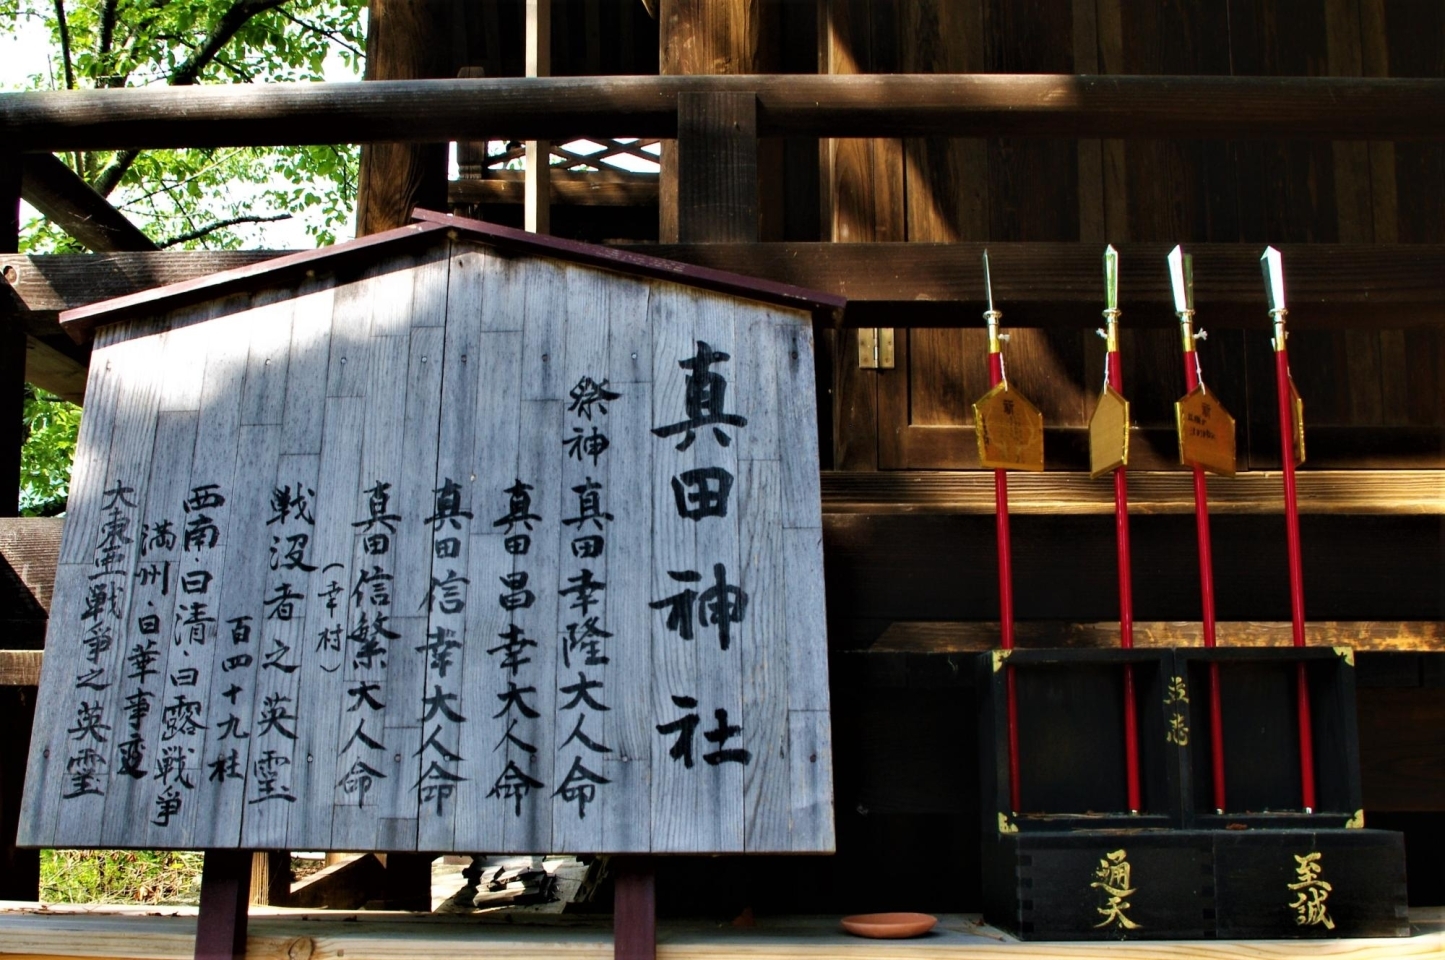 真田神社
祭神 真田幸隆大人命
真田昌幸大人命
真田信幸大人命
真田信繁大人命
（幸村）
戦没者之英霊
百四十九柱
西南・日清・日露戦争
満州・日華事変
大東亜戦争之英霊
通天
至誠